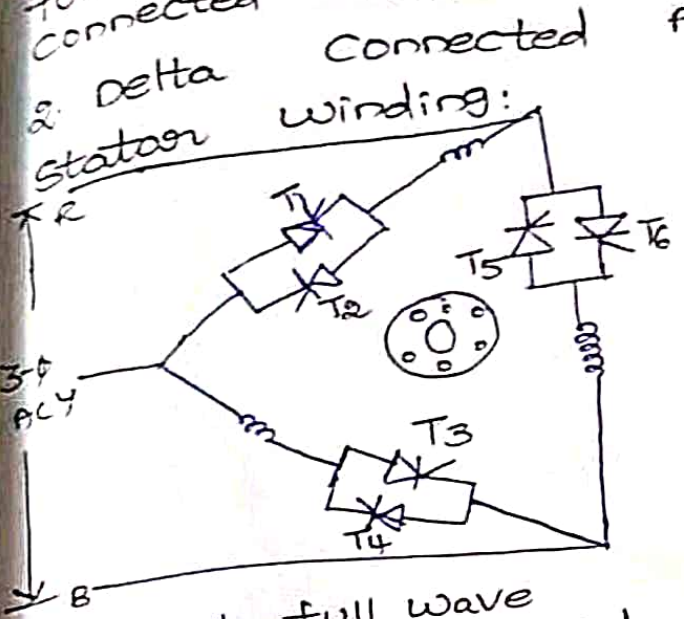 connected
2. Delta Connected f
Stator winding:
R
T1
T2
T5
T6
3-φ
AC Y
T3
T4
B
full wave